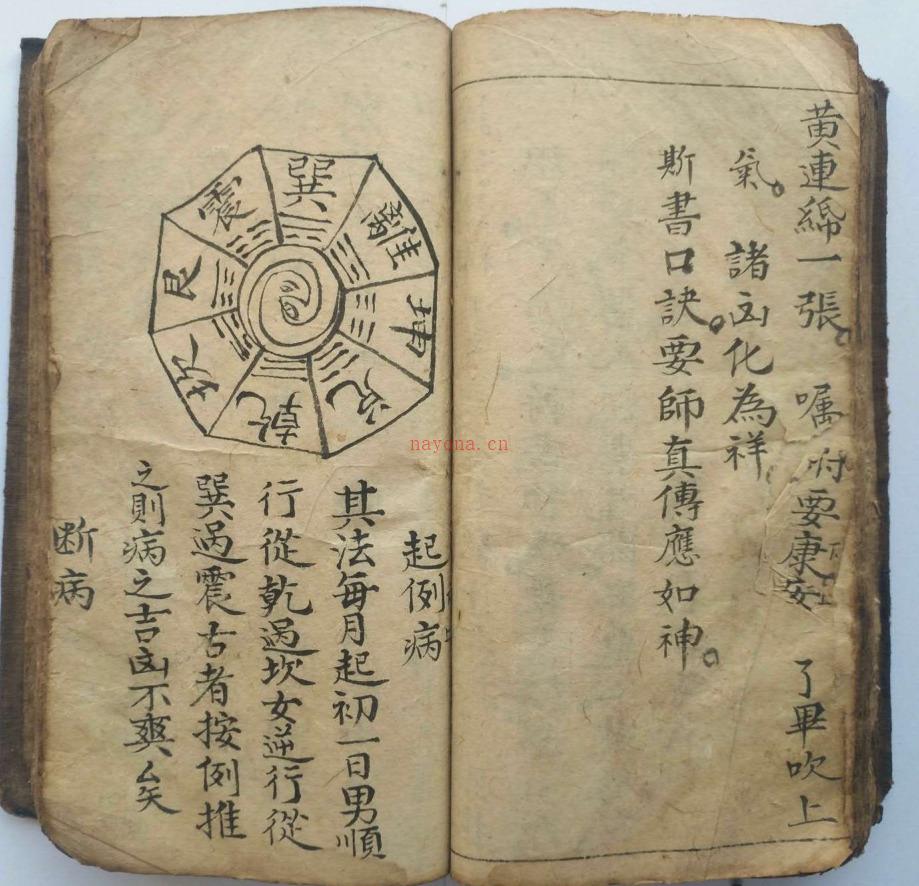 黄連一張。囑咐要康安 了畢吹上
氣。諸凶化為祥
斯書口訣。要師真傳應如神。
巽
離
坤
兌
乾
坎
艮
震
起例病
其法每月起初一日男順
行從乾過坎女逆行從
巽過震古者按例推
之則病之吉凶不爽厶矣
断病
nayona.cn